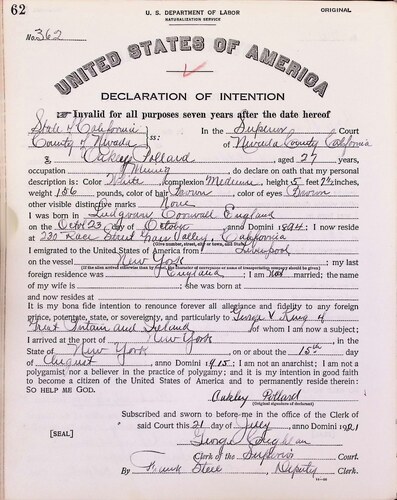 62
U. S. DEPARTMENT OF LABOR
NATURALIZATION SERVICE
ORIGINAL
No. 362
UNITED STATES OF AMERICA
DECLARATION OF INTENTION
Invalid for all purposes seven years after the date hereof
State of California
County of Nevada
ss:
In the Superior Court
of Nevada County California
I, Oakley Pollard, aged 27 years,
occupation Mining, do declare on oath that my personal
description is: Color White, complexion Medium, height 5 feet 7½ inches,
weight 150 pounds, color of hair Brown, color of eyes Brown
other visible distinctive marks None
I was born in Ludgvan Cornwall England
on the 23 day of October, anno Domini 1894; I now reside
at 230 Race Street Grass Valley, California
(Give number, street, city or town, and State.)
I emigrated to the United States of America from Liverpool
on the vessel New York; my last
(If the alien arrived otherwise than by vessel, the character of conveyance or name of transporting company should be given.)
foreign residence was England; I am not married; the name
of my wife is; she was born at
and now resides at
It is my bona fide intention to renounce forever all allegiance and fidelity to any foreign
prince, potentate, state, or sovereignty, and particularly to George V King of
Great Britain and Ireland, of whom I am now a subject;
I arrived at the port of New York, in the
State of New York, on or about the 15th day
of August, anno Domini 1915; I am not an anarchist; I am not a
polygamist nor a believer in the practice of polygamy; and it is my intention in good faith
to become a citizen of the United States of America and to permanently reside therein:
SO HELP ME GOD.
Oakley Pollard
(Original signature of declarant)
Subscribed and sworn to before me in the office of the Clerk of
said Court this 21 day of July, anno Domini 1921
[SEAL]
George Coughlan
Clerk of the Superior Court.
By Frank Steel, Deputy Clerk.